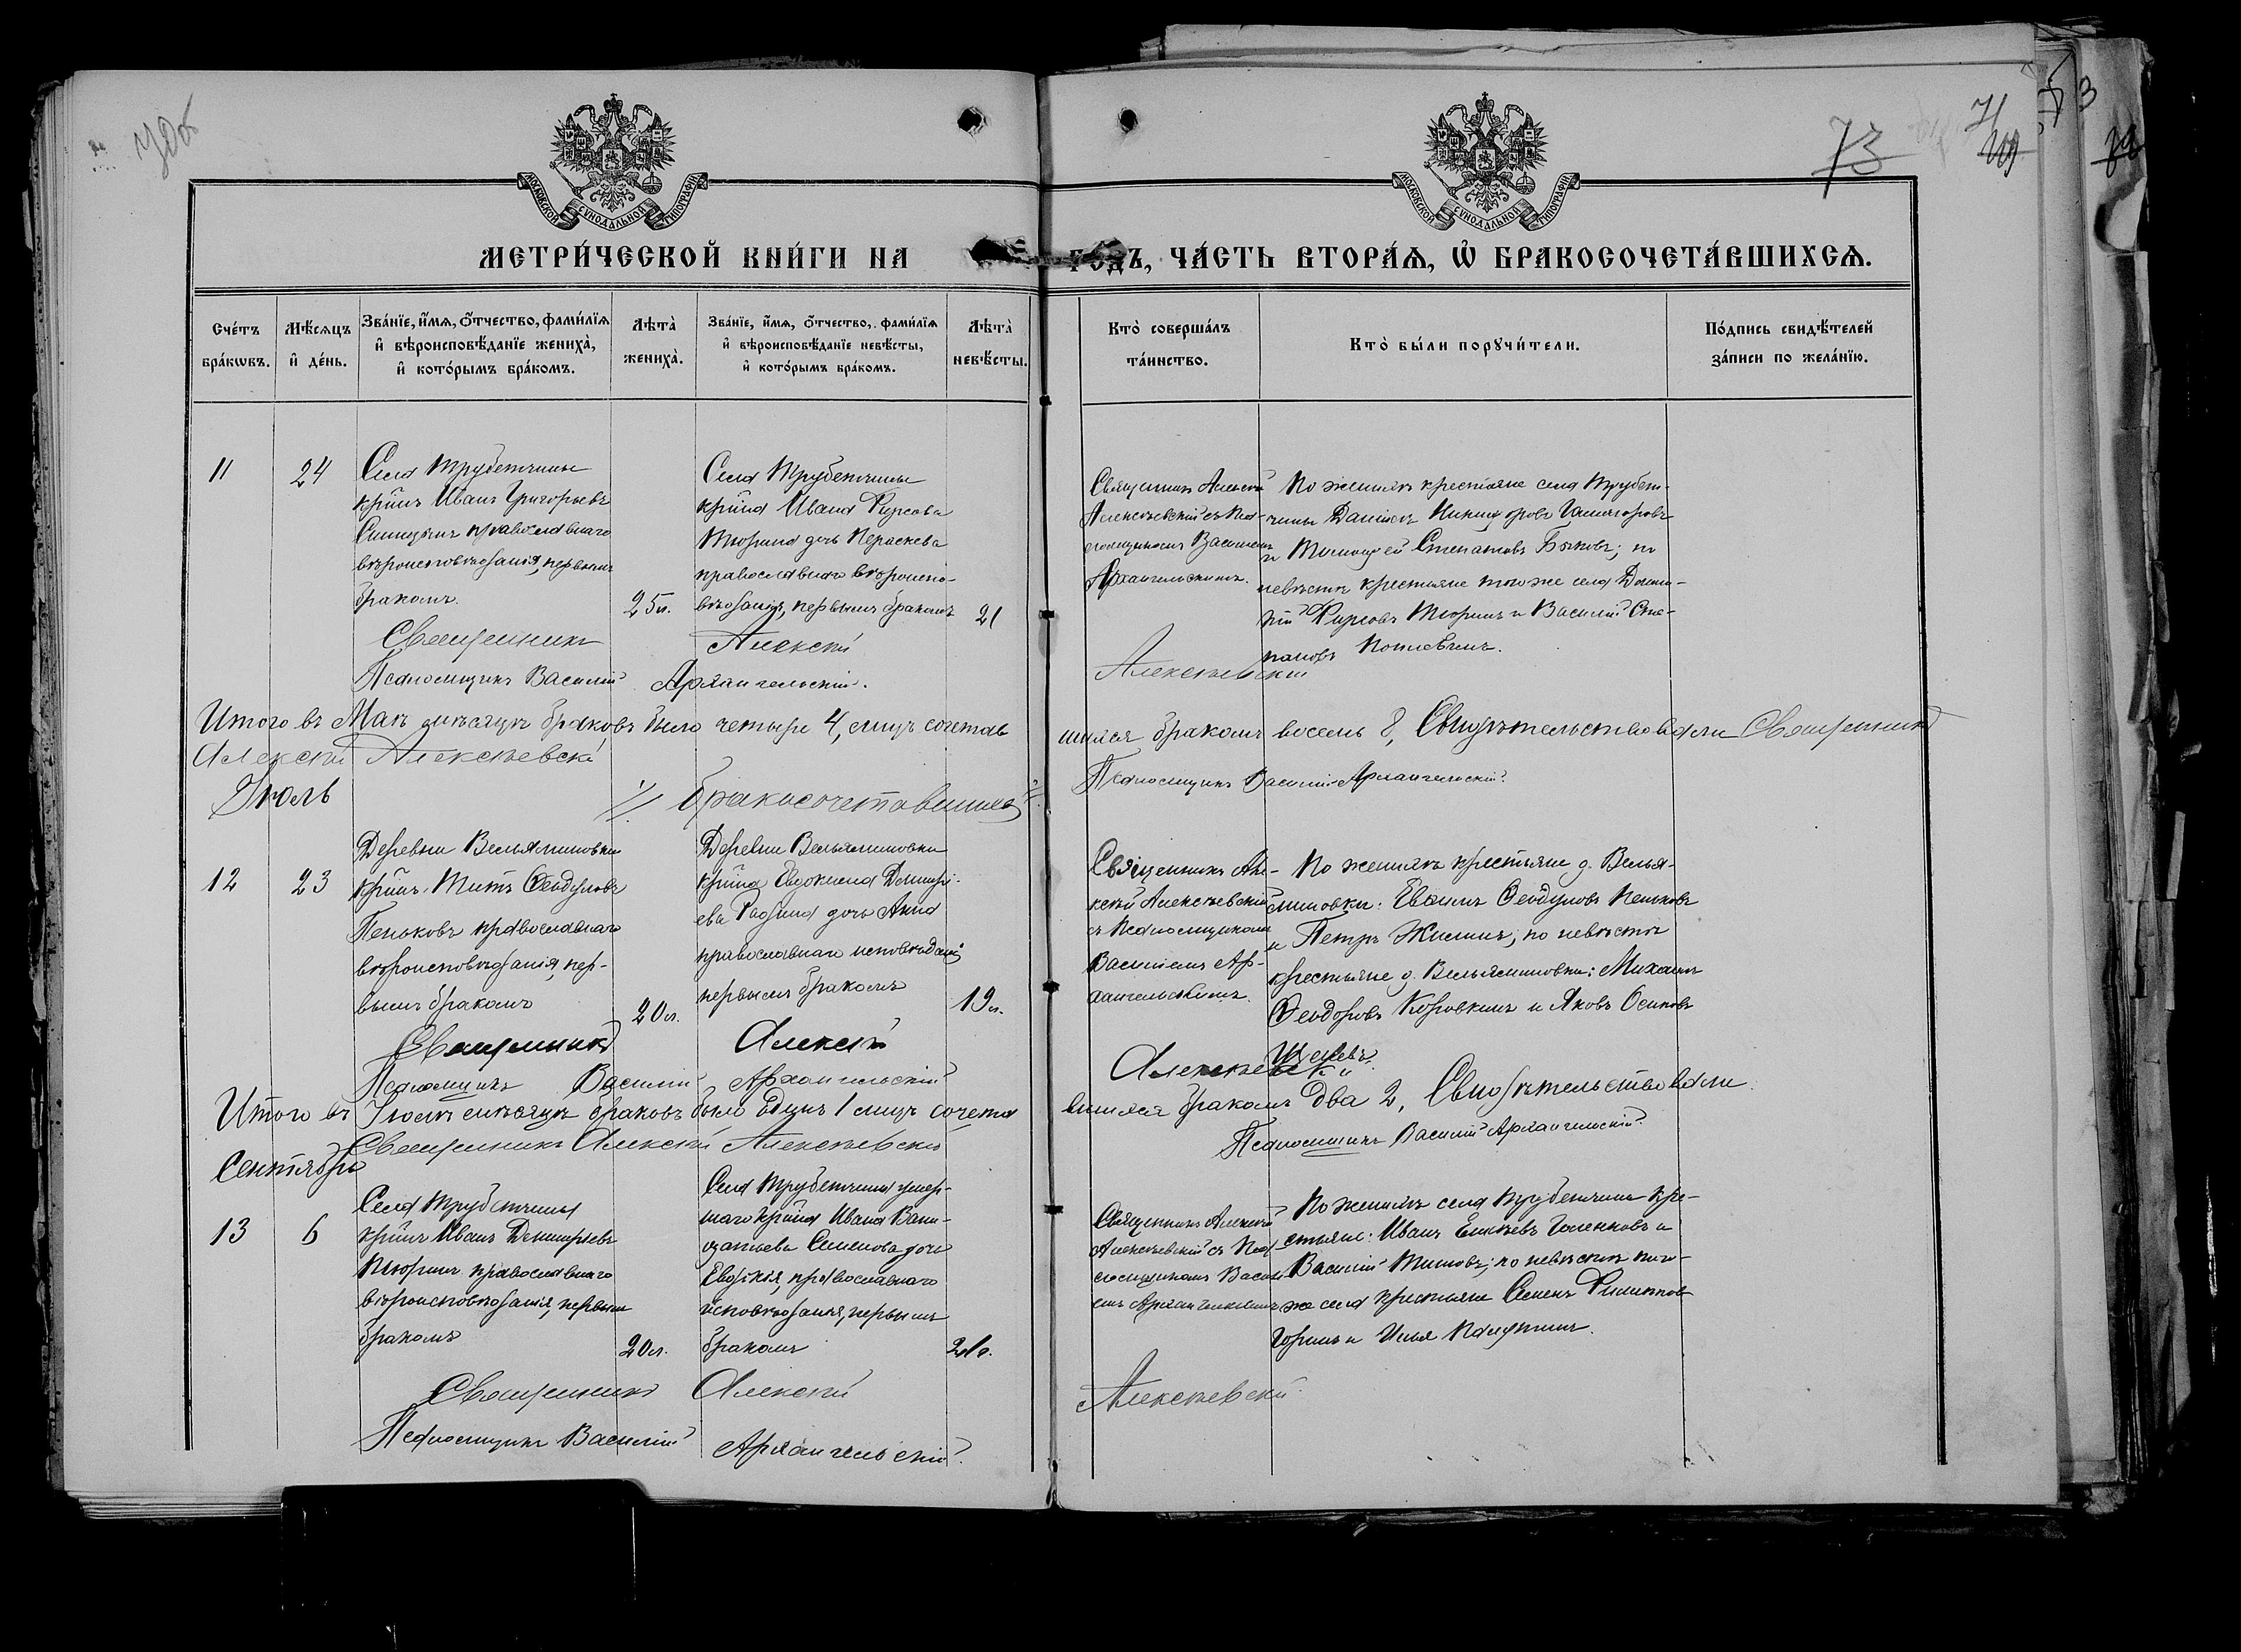 70об
73
71
МОСКОВСКОЙ СѴНОДАЛЬНОЙ ТИПОГРАФІИ
МОСКОВСКОЙ СѴНОДАЛЬНОЙ ТИПОГРАФІИ
МЕТРИ́ЧЕСКОЙ КНИ́ГИ НА ГОДЪ, ЧА́СТЬ ВТОРА́Ѧ, Ѽ БРАКОСОЧЕТА́ВШИХСѦ.
Сче́тъ бра́кωвъ.
Мѣ́сяцъ и҆ де́нь.
Зва́нїе, и҆́мѧ, о҆́тчество, фами́лїѧ
и҆ вѣроисповѣ́данїе жениха̀,
и҆ кото́рымъ бра́комъ.
Лѣта̀ жениха̀.
Зва́нїе, и҆́мѧ, о҆́тчество, фами́лїѧ
и҆ вѣроисповѣ́данїе невѣ́сты,
и҆ кото́рымъ бра́комъ.
Лѣта̀ невѣ́сты.
Кто̀ соверша́лъ
та́инство.
Кто̀ бы́ли порꙋчи́тели.
По́дпись свидѣ́телей
за́писи по жела́нїю.
11
24
Села Трубетчины
кр̃інъ Иванъ Григорьевъ
Синицынъ православнаго
вѣроисповѣданія, первымъ
бракомъ.
25 л.
Села Трубетчины
кр̃іна Ивана Фирсова
Тюрина дочь Параскева
православнаго вѣроиспо-
вѣданія, первымъ бракомъ
21
Священникъ Алексѣй
Алексѣевскій съ Пса-
ломщикомъ Василіемъ
Архангельскимъ.
По женихѣ крестьяне села Трубет-
чины Даніилъ Никифоровъ
и Тимофей Степановъ Быковъ; по
невѣстѣ крестьяне того же села
Фирсовъ Тюринъ и Василій Сте-
пановъ
Священникъ Алексѣй Алексѣевскій
Псаломщикъ Василій Архангельскій.
Итого въ Маѣ мѣсяцѣ браковъ было четыре 4, лицъ сочетав
шихся бракомъ восемь 8, Свидѣтельствовали Священникъ
Алексѣй Алексѣевскій
Псаломщикъ Василій Архангельскій.
Іюль
бракосочетавшихся
12
23
Деревни Вельяминовки
кр̃інъ Титъ Ѳеодуловъ
Пеньковъ православнаго
вѣроисповѣданія, пер-
вымъ бракомъ
20 л.
Деревни Вельяминовки
кр̃іна Евдокима Димитрі-
ева Радина дочь Анна
православнаго исповѣданія
первымъ бракомъ
19 л.
Священникъ Але-
ксѣй Алексѣевскій
съ Псаломщикомъ
Василіемъ Ар-
хангельскимъ.
По женихѣ крестьяне д. Велья-
миновки: Евѳимъ Ѳеодуловъ Пеньковъ
и Петръ Жилинъ; по невѣстѣ
крестьяне д. Вельяминовки: Михаилъ
Ѳеодоровъ Коровкинъ и Яковъ Осиповъ
Священникъ Алексѣй Алексѣевскій
Псаломщикъ Василій Архангельскій
Итого въ Іюлѣ мѣсяцѣ браковъ было Одинъ 1 лицъ сочета
вшихся бракомъ два 2, Свидѣтельствовали.
Священникъ Алексѣй Алексѣевскій
Псаломщикъ Василій Архангельскій.
Сентябрь
13
6
Села Трубетчины
кр̃інъ Иванъ Димитріевъ
Тюринъ православнаго
вѣроисповѣданія, первымъ
бракомъ
20 л.
Села Трубетчины умер-
шаго кр̃іна Ивана
Семенова дочь
Евдокія, православнаго
исповѣданія, первымъ
бракомъ
21 л.
Священникъ Алексѣй
Алексѣевскій съ Пса
ломщикомъ Васили
емъ Архангельскимъ
По женихѣ села Трубетчины кре-
стьяне: Иванъ Голенковъ и
Василій Титовъ; по невѣстѣ того-
же села крестьяне Семенъ Филиповъ
Горинъ и Илья
Священникъ Алексѣй Алексѣевскій
Псаломщикъ Василій Архангельскій.